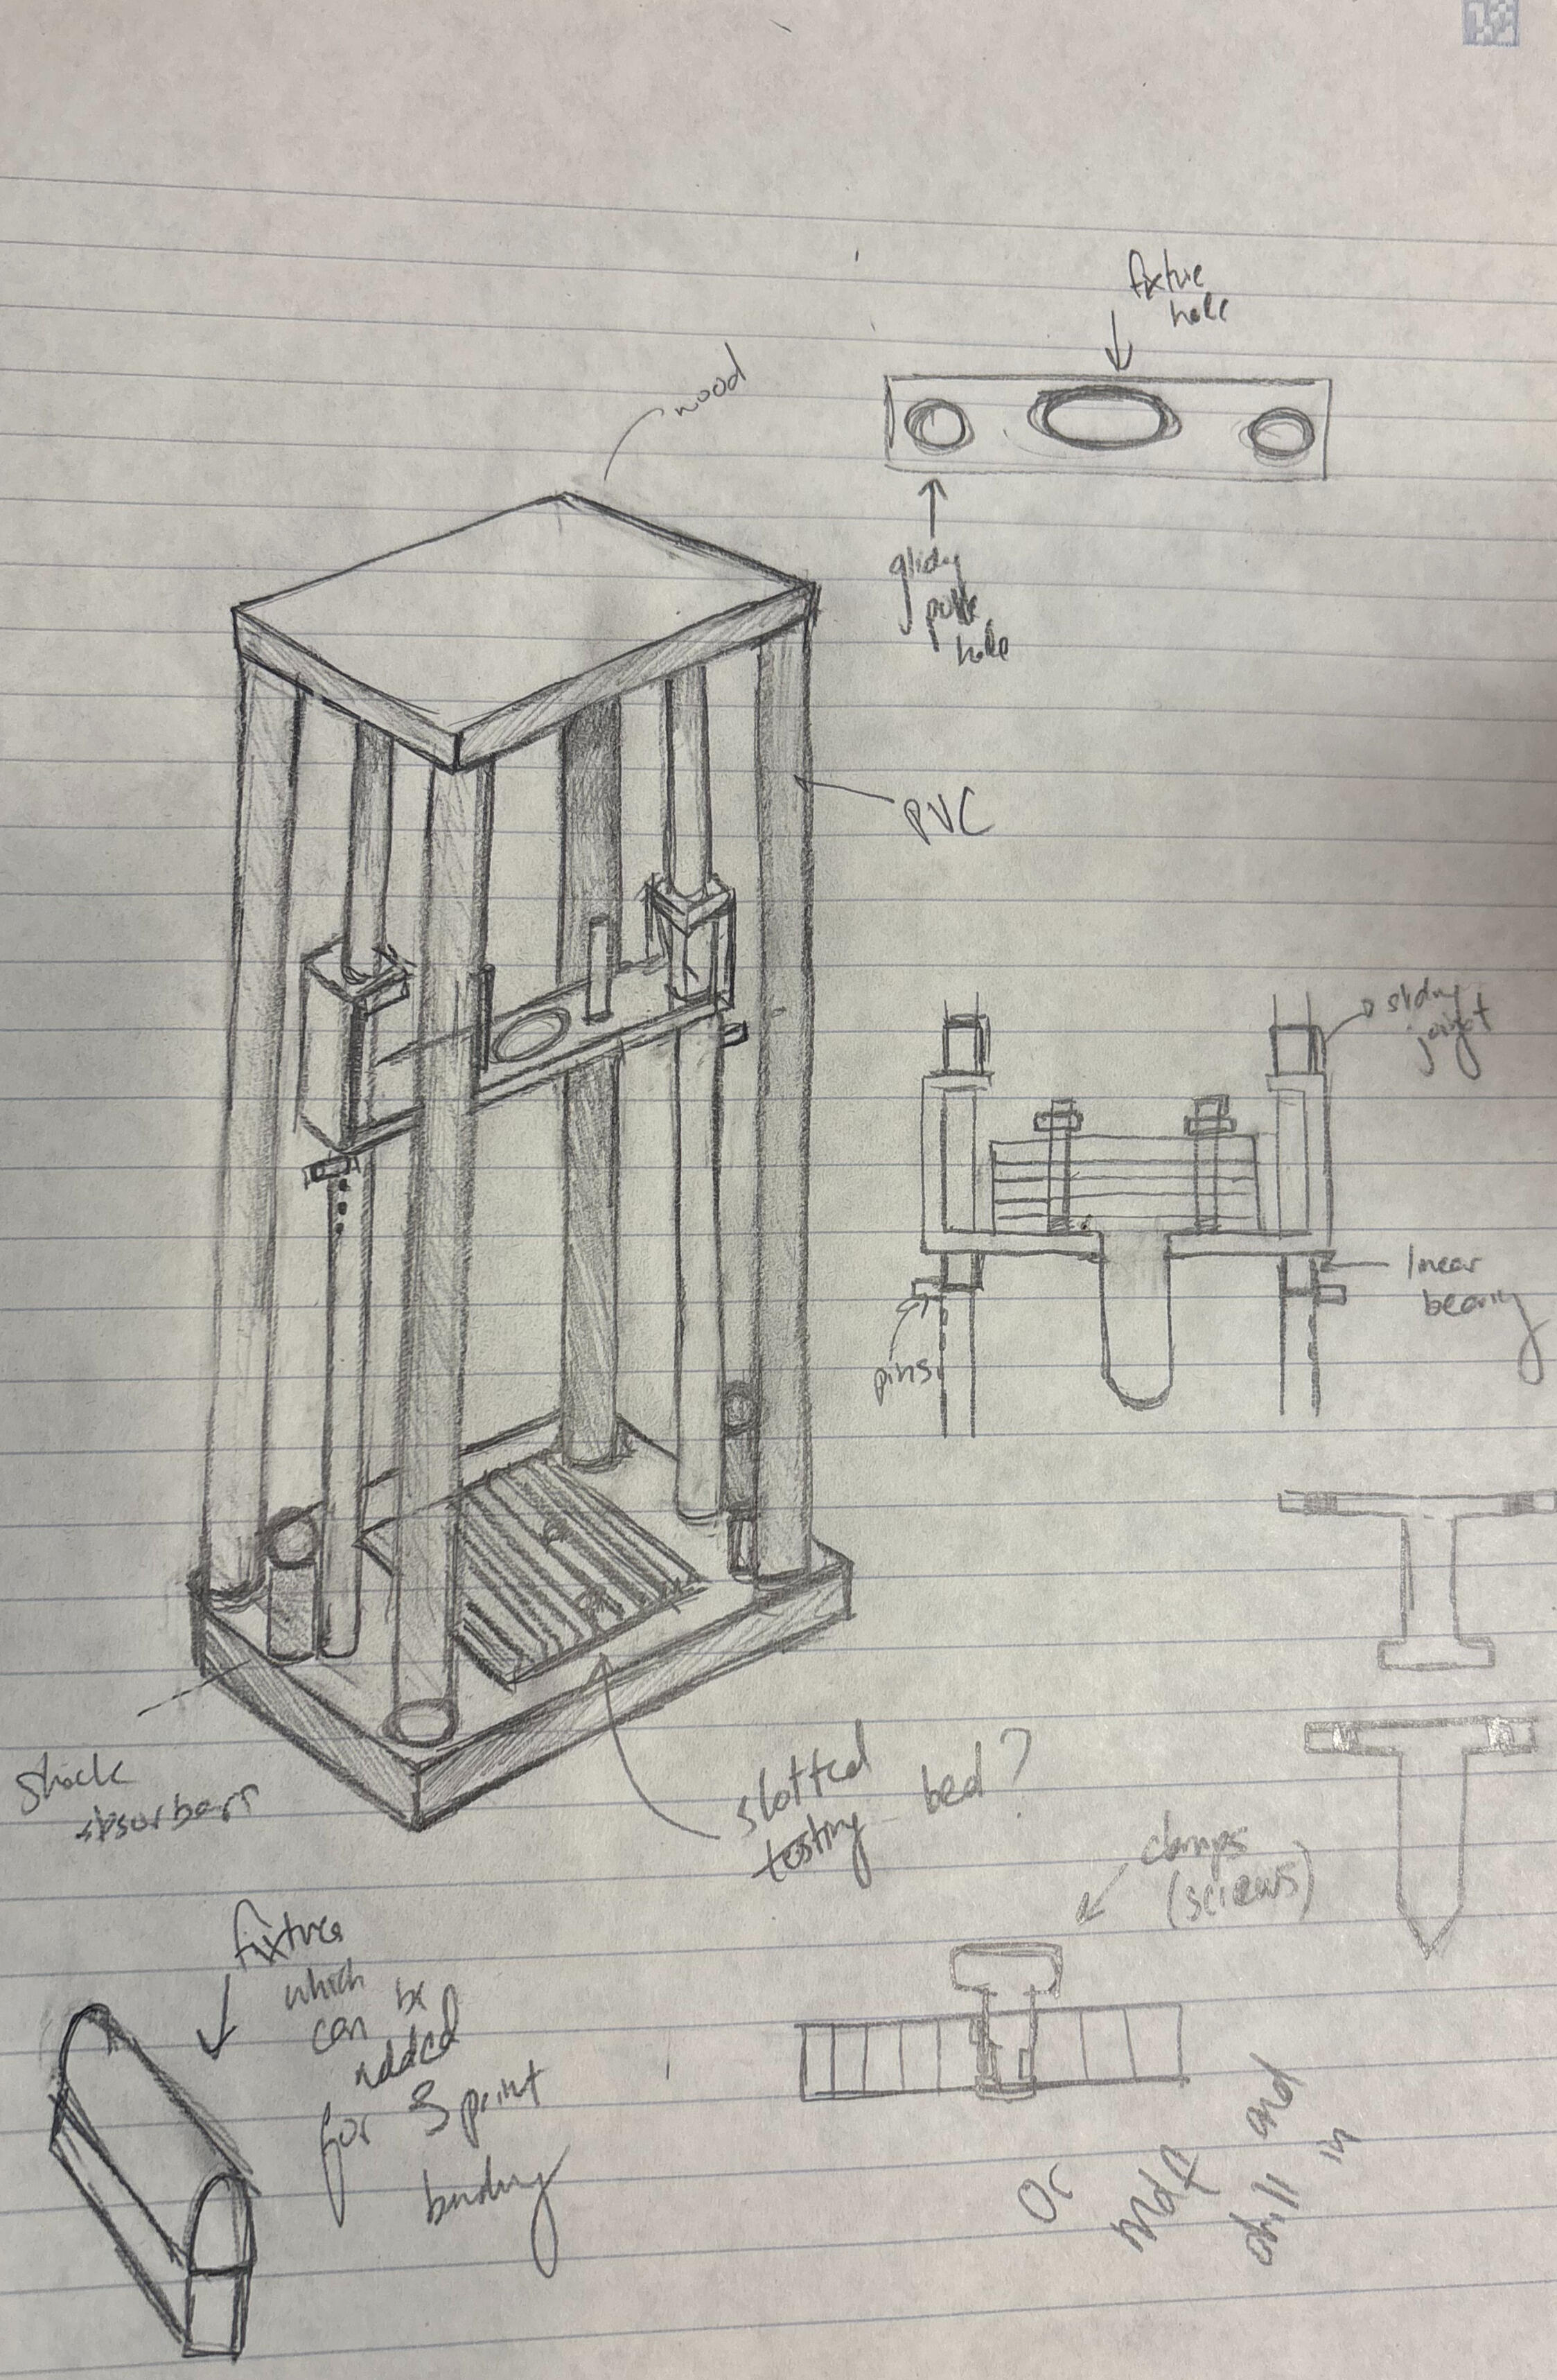 fixture
hole
wood
pole
hole
PVC
sliding
joint
linear
bearing
pins
shock
absorbers
slotted
testing bed?
clamps
(screws)
fixture
which
can be
added
for 3 point
bending
Or mdf and
drill in